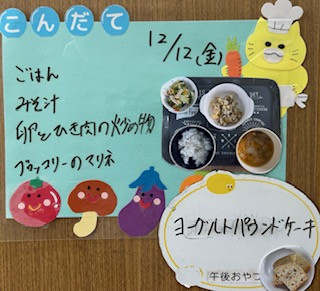 こんだて
12/12(金)
ごはん
みそ汁
卵とひき肉の炒め物
ブロッコリーのマリネ
ヨーグルトパウンドケーキ
午後おやつ